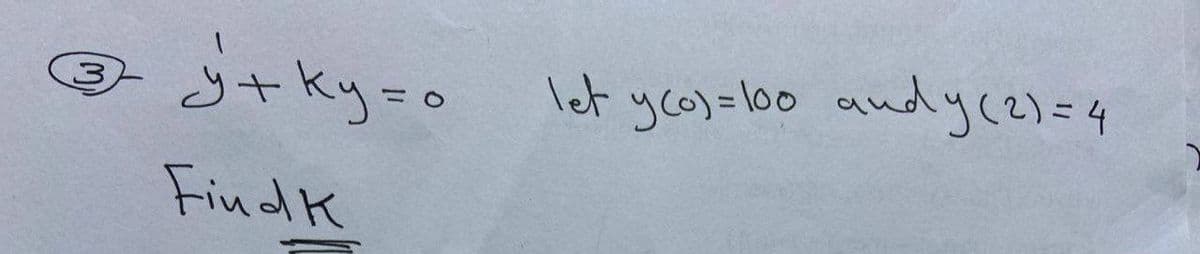 ③- y' + ky = 0 let y(0) = 100 and y(2) = 4
Find K